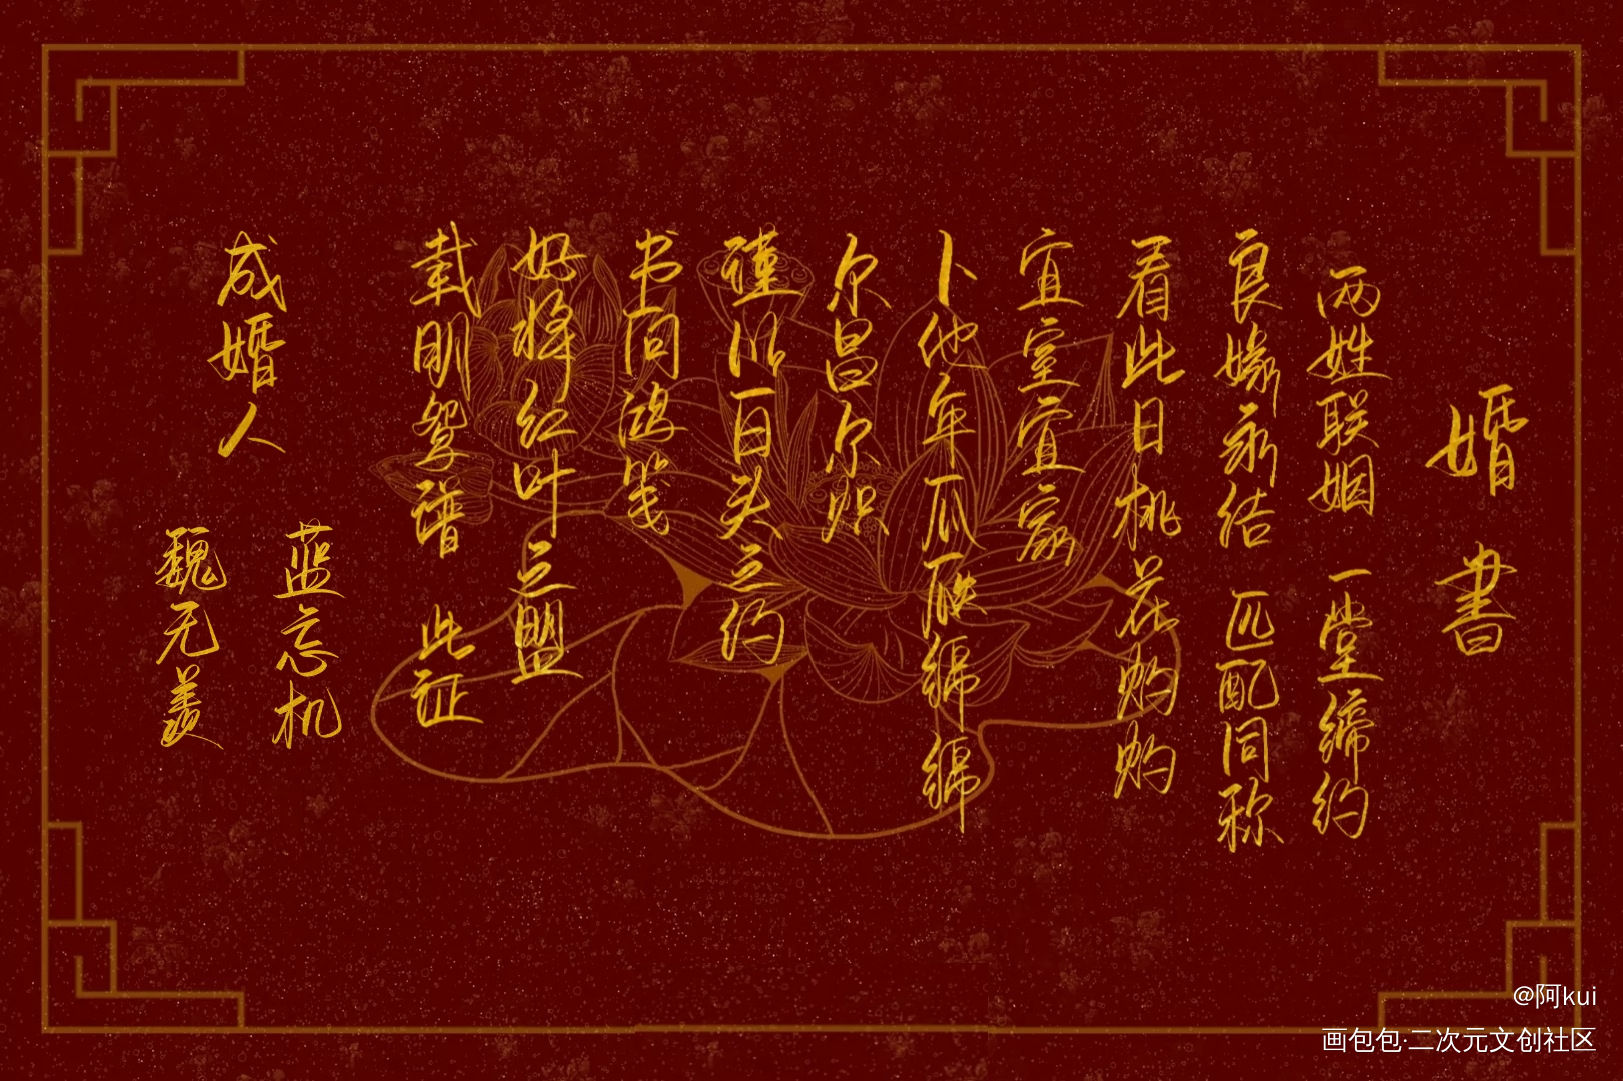 婚書
两姓联姻 一堂缔约
良缘永结 匹配同称
看此日桃花灼灼
宜室宜家
卜他年瓜瓞绵绵
尔昌尔炽
谨以白头之约
书向鸿笺
好将红叶之盟
载明鸳谱 此证
成婚人
蓝忘机
魏无羡
@阿kui
画包包·二次元文创社区